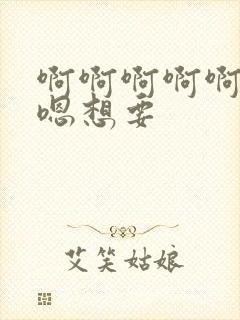 啊啊啊啊啊
嗯想要
艾笑姑娘